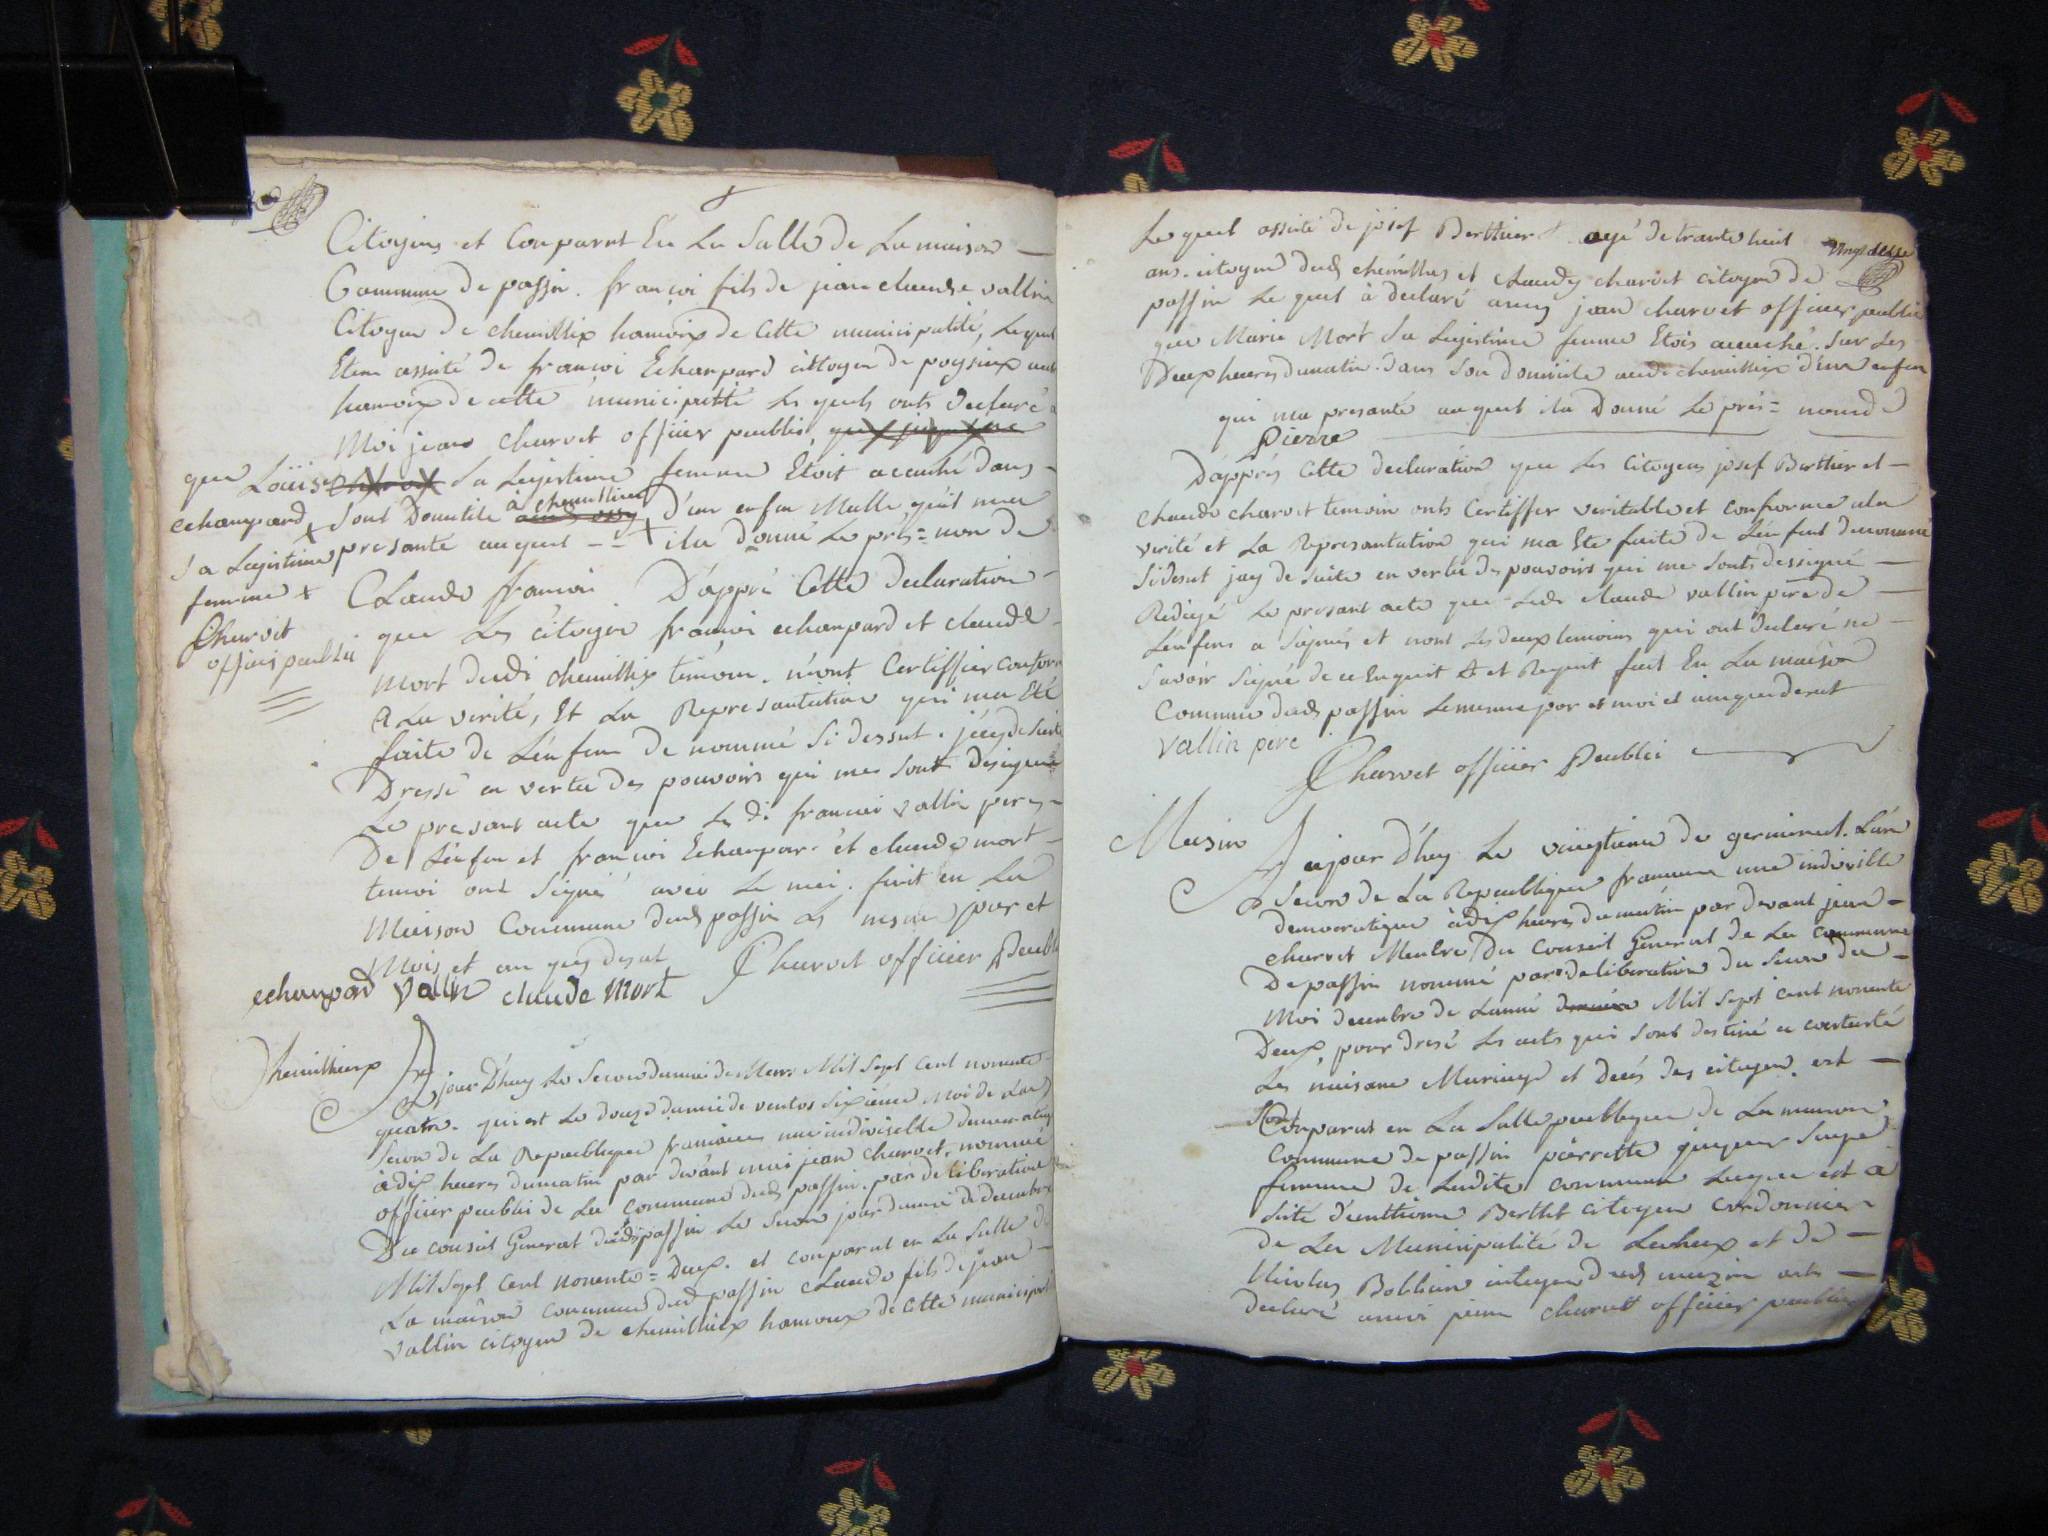 Citoyens et Conparut En La Salle de La maison
Commune de passin. françoi fils de jean claude vallin
Citoyen de chemillix hamoix de Cette municipalité, Lequel
Etan assisté de françoi Echanpard citoyen de poysieux
hamoix de cette municipalité Les quels onts declaré a
Moi jean charvet officier peublic,
que Loüise Sa Legistime femme Etoit accuché dans
echanpard x Sont Domitile à chemillieu D'un enfan Malle, quil ma
Sa Legistime presanté auquel -- x ila donné Le prés=non de
femme x Claude françoi D'appré Cette declaration
Charvet que Les citoyen françoi echanpard et claude
officié peublic Mort dudi chemillix témoin. m'ont Certiffier conforme
A La verité, Et La Representation qui ma Eté
faite de Lénfan de nommé Si dessut. j'ay de Suite
Dressé en vertu des pouvoirs qui mes Sont designé
Le presant acte que Le di françoi vallin pere
De Lénfan et françoi Echanpar et claude mort
temoi ont Signé avec Le moi. fait en La
Maison Commune dud passin Les mesme jour et
Mois et an que desut
echanpard vallin claude mort Charvet officier Peublic
Chemillieux Aujour D'huy Le Secon dumoi de Mars Mil Sept Cent nonente
quatre. qui est Le douze dumoi de ventos Sixième Moi de Lan
Secon de La Republique françaisse une indiviselble democratiq
à dix heures dumatin par devant moi jean charvet, nommé
officier peublic de La Commune dud passin. par deliberation
Du conseil General dudi passin Le Secon jour dumoi de decembre
Mil Sept Cent Nonente=Deux. et conparut en La Salle de
La maison commune dud passin Claude fils de jean
vallin citoyen de chemillieix hamoux de Cette municipal
Le quel assité de josef Berthier agé de trante heut
ans. citoyen dud chemillux et Claude charvet citoyen de
passin Le quel à declaré amoy jean charvet officier peublic
que Marie Mort Sa Legistime femme Etois acuché. Sur Les
Deux heures dumatin. dans Son domicile aud chemillix d'un enfan
qui ma presanté auquel ila Donné Le prés= nomde
Pierre
D'apprés Cette declaration que Les Citoyens josef Berthier et
claude charvet temoin onts Certiffier veritable et conforme ala
verité et La Representation qui ma Ete faite de Lénfant denomme
Sidesut jay de Suite en vertu des pouvoirs qui me Sonts dessigné
Redigé Le presant acte que Ledi claude vallin pere de
Lénfens a Signés et nont Les deux temoins qui ont declaré ne
Savoir Signé de ce Enquit et Requit fait En La maison
Commune dud passin Lemesme jor et moi et anquedesut
Vallin pere
Charvet officier Peublic
Musin Aujour d'huy Le vingtieme de germinal. Lán
Secon de La Republique francaise une indivisible
democratique à dix heures du matin par devant jean
charvet Menbre Du Conseil General de La Commune
De passin nommé par deliberation du Secon du
Moi decenbre de Lanné Mil Sept cent nonente
Deux, pour dresé Les acts qui Sont destiné a
Les naisanse Mariage et decés des citoyen. est
Conparut en La Salle peublique de La maison
Commune de passin pierrette Sage
femme de Ladite commune Laquelle est a
Sité Berthet citoyen Cordonnier
de La Municipalité de et de
Nicolas citoyen dud muzin onts
declaré amoi jean charvet officier peublic